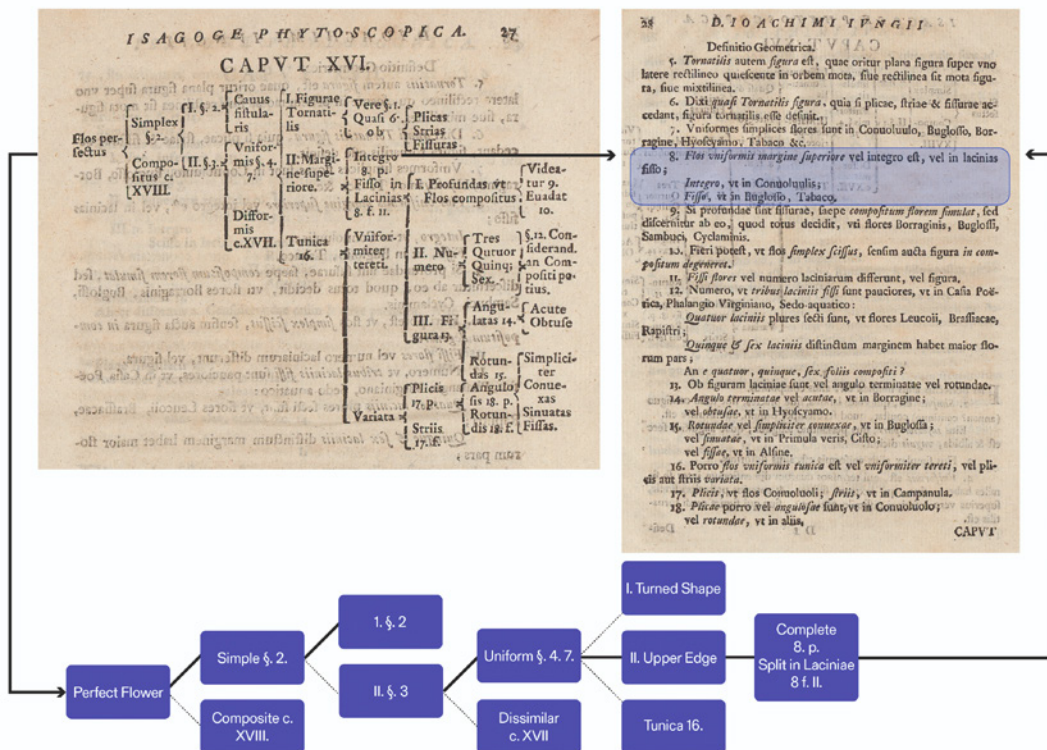 ISAGOGE PHYTOSCOPICA. 27
CAPVT XVI.
Flos persectus
Simplex §. 2.
Compositus c. XVIII.
I. §. 2.
II. §. 3.
Cauus fistularis
Vniformis §. 4. 7.
Difformis c. XVII.
I. Figurae Tornatilis
II. Margine superiore.
Tunica 16.
Vere §. 1.
Quasi 6. ob
Plicas
Strias
Fissuras
Integro 8. p.
Fisso in Lacinias 8. f. 11.
I. Profundas vt Flos compositus
Videatur 9.
Euadat 10.
II. Numero
Tres
Qutuor
Quinq;
Sex.
§. 12. Considerand. an Compositi potius.
III. Figura 13.
Angulatas 14.
Acute
Obtuse
Rotundas 15.
Simpliciter Conuexas
Sinuatas
Fissas.
Vniformiter tereti.
Variata
Plicis 17. p.
Angulosis 18. p.
Rotundis 18. f.
Striis 17. f.
28 D. IOACHIMI IVNGII
Definitio Geometrica.
5. Tornatilis autem figura est, quae oritur plana figura super vno
latere rectilineo quiescente in orbem mota, siue rectilinea sit mota figu-
ra, siue mixtilinea.
6. Dixi quasi Tornatilis figura, quia si plicae, striae & fissurae ac-
cedant, figura tornatilis esse desinit.
7. Vniformes simplices flores sunt in Conuoluulo, Buglosso, Bor-
ragine, Hyoscyamo, Tabaco &c.
8. Flos vniformis margine superiore vel integro est, vel in lacinias
fisso;
Integro, vt in Conuoluulis;
Fisso, vt in Buglosso, Tabaco.
9. Si profundae sint fissurae, saepe compositum florem simulat, sed
discernitur ab eo, quod totus decidit, vti flores Borraginis, Buglossi,
Sambuci, Cyclaminis.
10. Fieri potest, vt flos simplex scissus, sensim aucta figura in com-
positum degeneret.
11. Fissi flores vel numero laciniarum differunt, vel figura.
12. Numero, vt tribus laciniis fissi sunt pauciores, vt in Casia Poë-
tica, Phalangio Virginiano, Sedo aquatico:
Quatuor laciniis plures secti sunt, vt flores Leucoii, Brassicae,
Rapistri;
Quinque & sex laciniis distinctum marginem habet maior flo-
rum pars;
An e quatuor, quinque, sex foliis compositi?
13. Ob figuram laciniae sunt vel angulo terminatae vel rotundae.
14. Angulo terminatae vel acutae, vt in Borragine;
vel obtusae, vt in Hyoscyamo.
15. Rotundae vel simpliciter conuexae, vt in Buglossa;
vel sinuatae, vt in Primula veris, Cisto;
vel fissae, vt in Alsine.
16. Porro flos vniformis tunica est vel vniformiter tereti, vel pli-
cis aut striis variata.
17. Plicis, vt flos Conuoluoli; striis, vt in Campanula.
18. Plicae porro vel angulosae sunt, vt in Conuoluolo;
vel rotundae, vt in aliis,
CAPVT
Perfect Flower
Simple §. 2.
Composite c.
XVIII.
1. §. 2
II. §. 3
Uniform §. 4. 7.
Dissimilar
c. XVII
I. Turned Shape
II. Upper Edge
Tunica 16.
Complete
8. p.
Split in Laciniae
8 f. II.